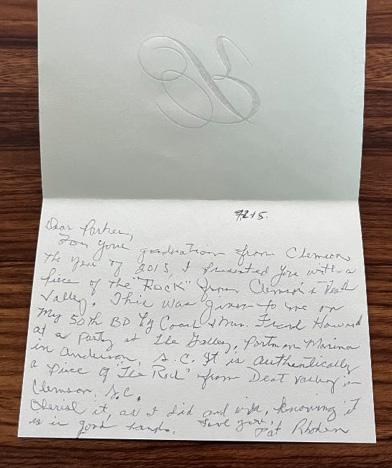 B
7215.
Dear Parker,
For your graduation from Clemson
the year of 2015, I presented you with a
piece of the "Rock" from Clemson's Death
Valley. This was given to me on
my 50th BD by Coach & Mrs. Frank Howard
at a party at The Galley, Portman Marina
in Anderson, S.C. It is authentically
a piece of "The Rock" from Death Valley in
Clemson, S.C.
Cherish it, as I did and will, knowing it
is in good hands. Love you,
Pat